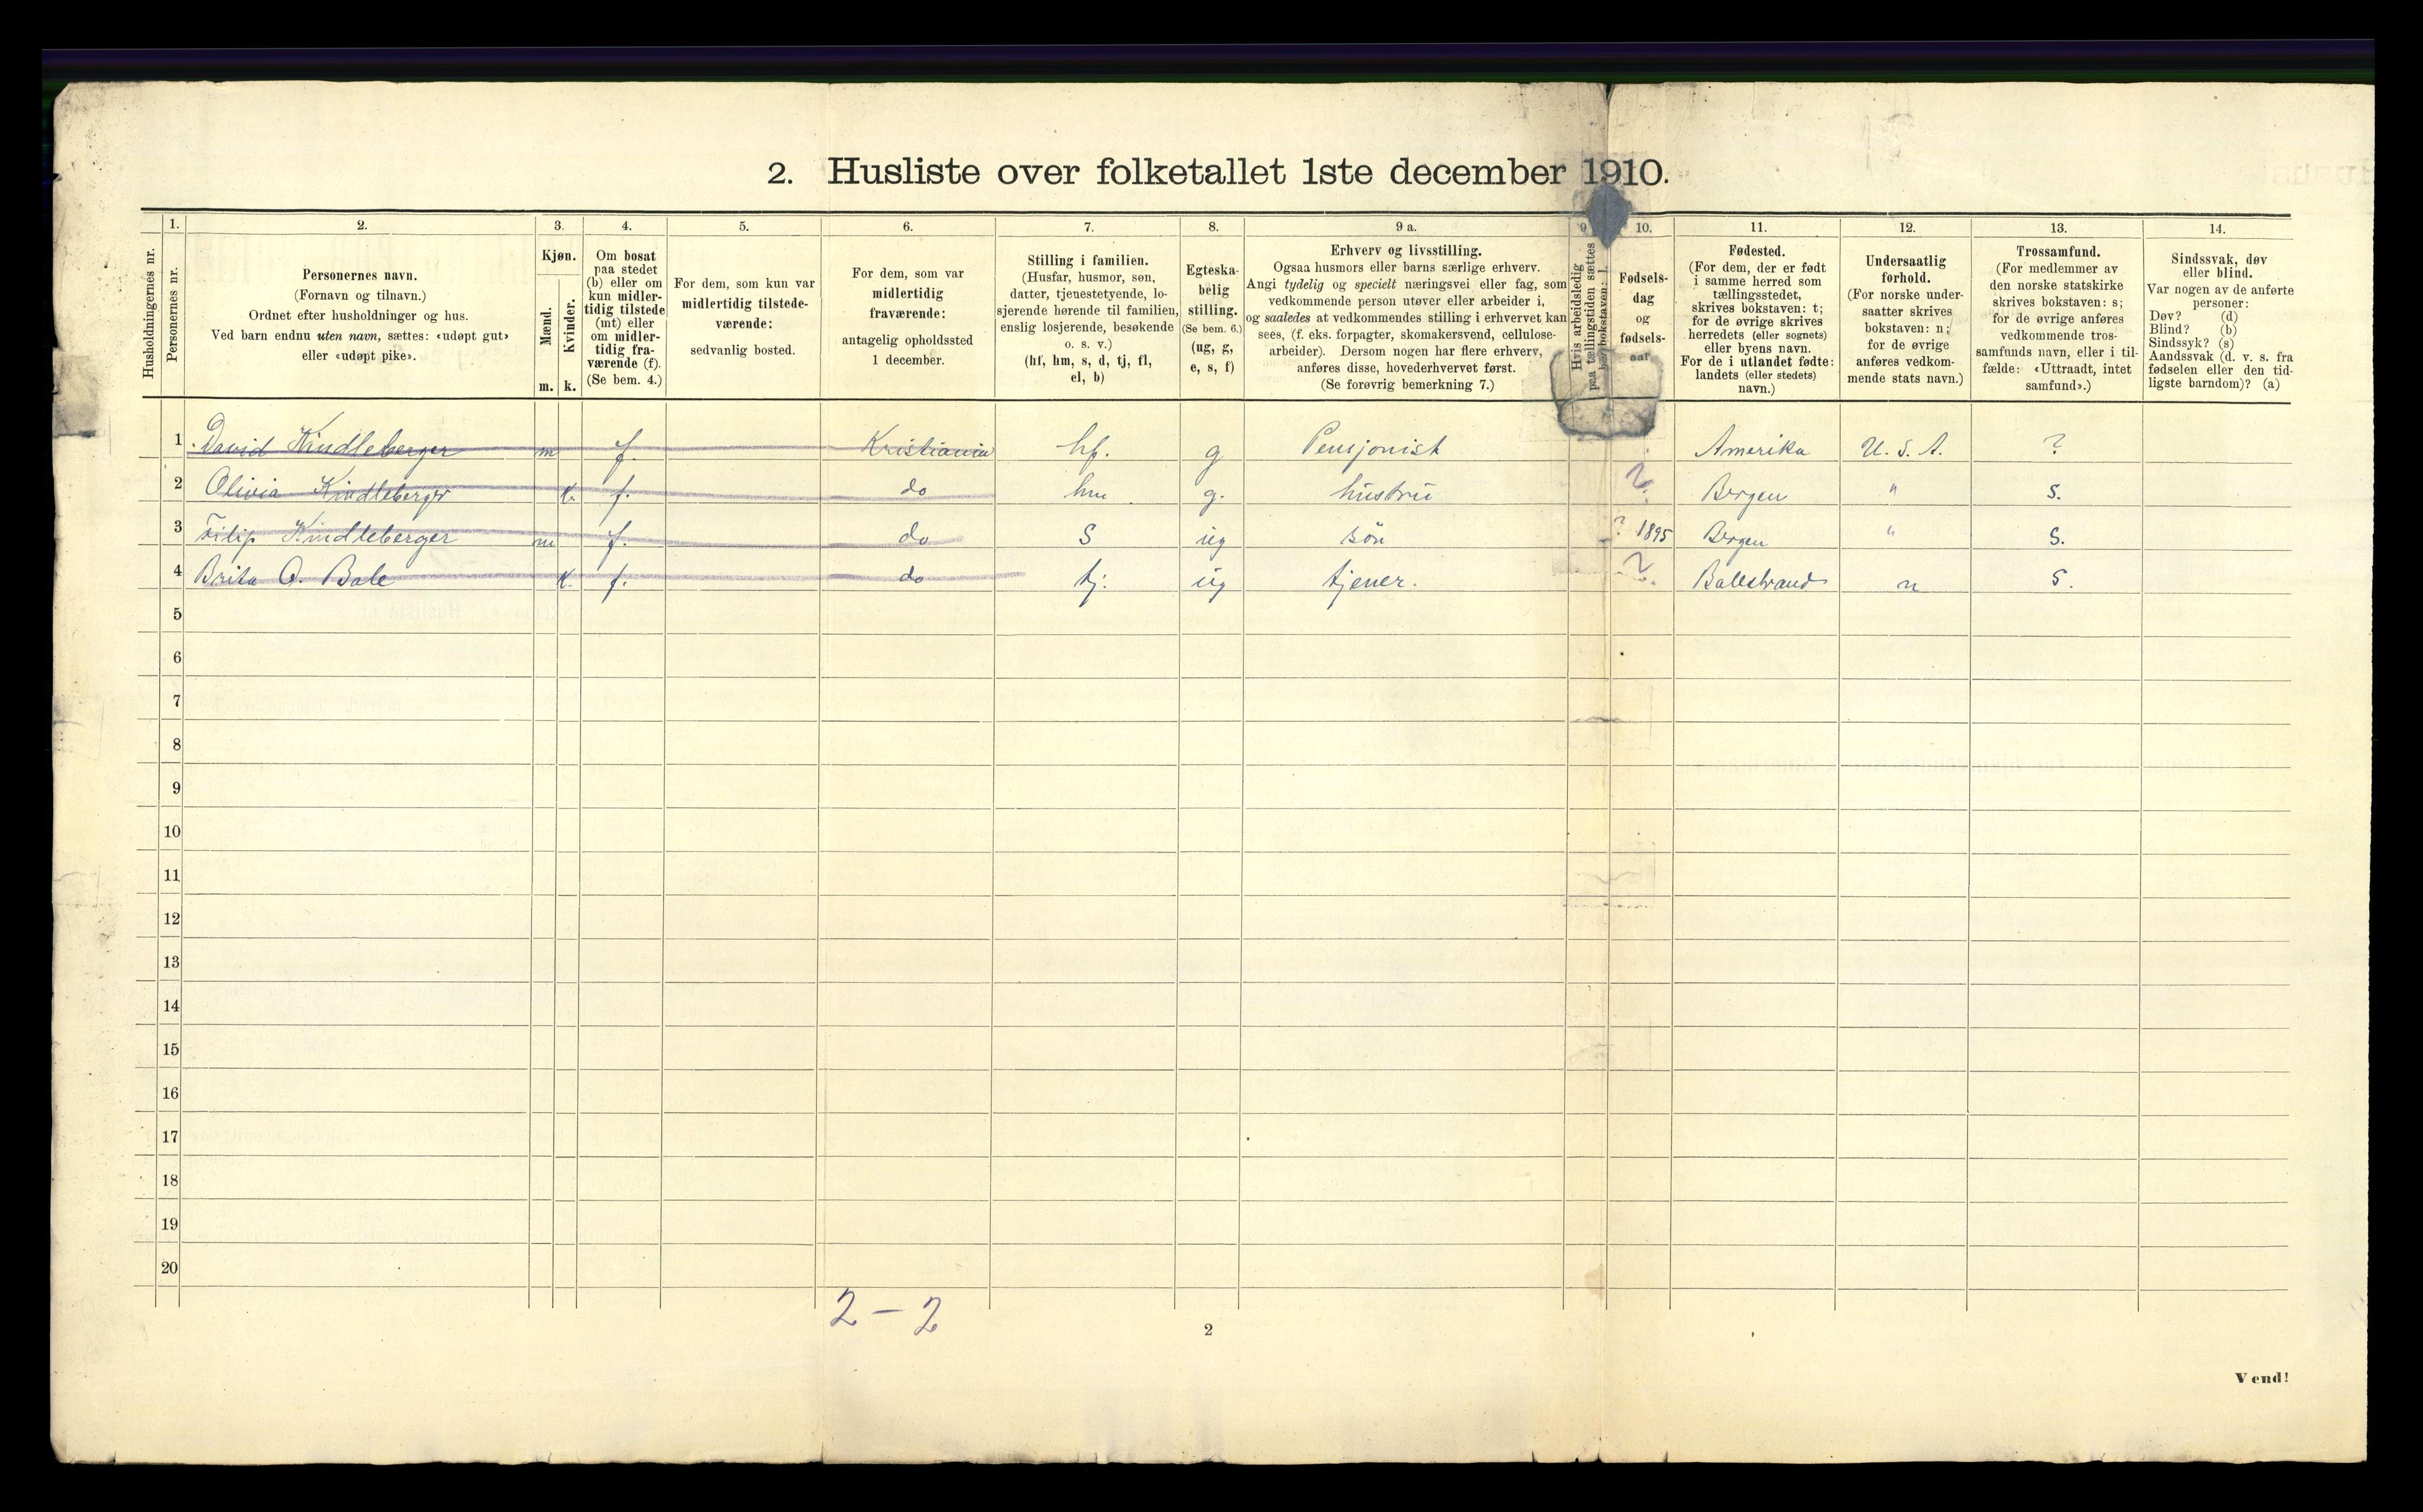 2. Husliste over folketallet 1ste december 1910.
Husholdningernes nr.
1.
Personernes nr.
2.
Personernes navn.
(Fornavn og tilnavn.)
Ordnet efter husholdninger og hus.
Ved barn endnu uten navn, sættes: «udøpt gut»
eller «udøpt pike».
3.
Kjøn.
Mænd.
Kvinder.
m. k.
4.
Om bosat
paa stedet
(b) eller om
kun midler-
tidig tilstede
(mt) eller
om midler-
tidig fra-
værende (f).
(Se bem. 4.)
5.
For dem, som kun var
midlertidig tilstede-
værende:
sedvanlig bosted.
6.
For dem, som var
midlertidig
fraværende:
antagelig opholdssted
1 december.
7.
Stilling i familien.
(Husfar, husmor, søn,
datter, tjenestetyende, lo-
sjerende hørende til familien,
enslig losjerende, besøkende
o. s. v.)
(hf, hm, s, d, tj, fl,
el, b)
8.
Egteska-
belig
stilling.
(Se bem. 6.)
(ug, g,
e, s, f)
9 a.
Erhverv og livsstilling.
Ogsaa husmors eller barns særlige erhverv.
Angi tydelig og specielt næringsvei eller fag, som
vedkommende person utøver eller arbeider i,
og saaledes at vedkommendes stilling i erhvervet kan
sees, (f. eks. forpagter, skomakersvend, cellulose-
arbeider). Dersom nogen har flere erhverv,
anføres disse, hovederhvervet først.
(Se forøvrig bemerkning 7.)
9
Hvis arbeidsledig
paa tællingstiden sættes
her bokstaven: l.
10.
Fødsels-
dag
og
fødsels-
aar.
11.
Fødested.
(For dem, der er født
i samme herred som
tællingsstedet,
skrives bokstaven: t;
for de øvrige skrives
herredets (eller sognets)
eller byens navn.
For de i utlandet fødte:
landets (eller stedets)
navn.)
12.
Undersaatlig
forhold.
(For norske under-
saatter skrives
bokstaven: n;
for de øvrige
anføres vedkom-
mende stats navn.)
13.
Trossamfund.
(For medlemmer av
den norske statskirke
skrives bokstaven: s;
for de øvrige anføres
vedkommende tros-
samfunds navn, eller i til-
fælde: «Uttraadt, intet
samfund».)
14.
Sindssvak, døv
eller blind.
Var nogen av de anførte
personer:
Døv? (d)
Blind? (b)
Sindssyk? (s)
Aandssvak (d. v. s. fra
fødselen eller den tid-
ligste barndom)? (a)
1 David Kindleberger m f. Kristiania hf. g Pensjonist Amerika U. S. A. ?
2 Olivia Kindleberger k. f. do hm g. hustru ? Bergen " S.
3 Filip Kindleberger m f. do S ug sön ? 1895 Bergen " S.
4 Brita O. Bale k. f. do tj: ug tjener. ? Balestrand n S.
5
6
7
8
9
10
11
12
13
14
15
16
17
18
19
20
2 – 2
2
Vend!